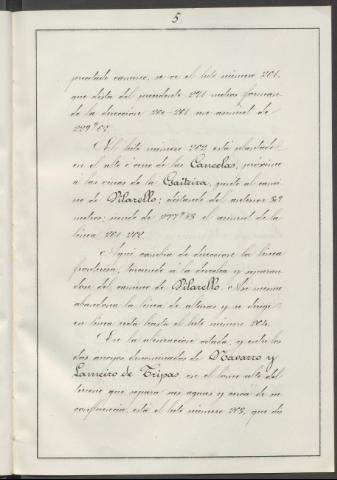 5
precitado camino, se ve el hito número 201,
que dista del precedente 291 metros, formando
de la dirección 200-201 un azimut de
229º62'.
El hito número 202 está plantado
en el alto ó cima de las Cancelas, próximo
á las ruinas de la Gaiteira, junto al cami
no de Vilarello; distando del anterior
metros; siendo de 177º58' el azimut de la
línea 201-202.
Aquí cambia de dirección la línea
fronteriza, torciendo á la derecha y separan
dose del camino de Vilarello. Asi mismo
abandona la línea de alturas y se dirige
en línea recta hasta el hito número 204.
En la alineación citada, y entre los
dos arroyos denominados de Navarro y
Lameiro de Tripas en el lomo alto del
terreno que separa sus aguas y cerca de su
confluencia, está el hito número 203, que dis